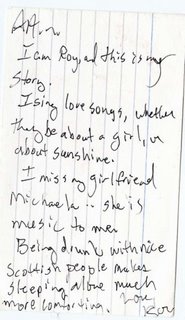 I am Roy, and this is my
story.
I sing love songs, whether
they be about a girl, or
about sunshine.
I miss my girlfriend
Michaela .. she is
music to me.
Being drunk with nice
Scottish people makes
sleeping alone much
more comforting. Love
Roy